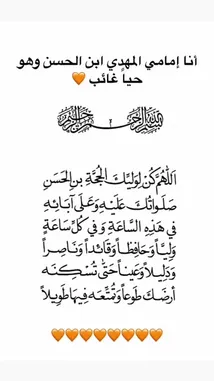 أنا إمامي المهدي ابن الحسن وهو
حياً غائب 🧡
بسم الله الرحمن الرحيم
اَللّٰهُمَّ كُنْ لِوَلِيِّكَ الْحُجَّةِ بْنِ الْحَسَنِ
صَلَواتُكَ عَلَيْهِ وَعَلىٰ آبَائِهِ
فِي هٰذِهِ السَّاعَةِ وَفِي كُلِّ سَاعَةٍ
وَلِيّاً وَحَافِظاً وَقَائِداً وَنَاصِراً
وَدَلِيلاً وَعَيْناً حَتّىٰ تُسْكِنَهُ
أَرْضَكَ طَوْعاً وَتُمَتِّعَهُ فِيهَا طَوِيلاً
🧡🧡🧡🧡🧡🧡🧡🧡